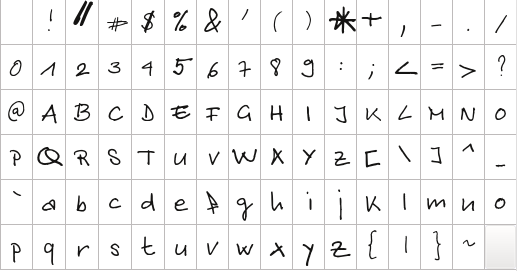 ! " # $ % & ' ( ) * + , - . /
0 1 2 3 4 5 6 7 8 9 : ; < = > ?
@ A B C D E F G H I J K L M N O
P Q R S T U V W X Y Z [ \ ] ^ _
` a b c d e f g h i j k l m n o
p q r s t u v w x y z { | } ~